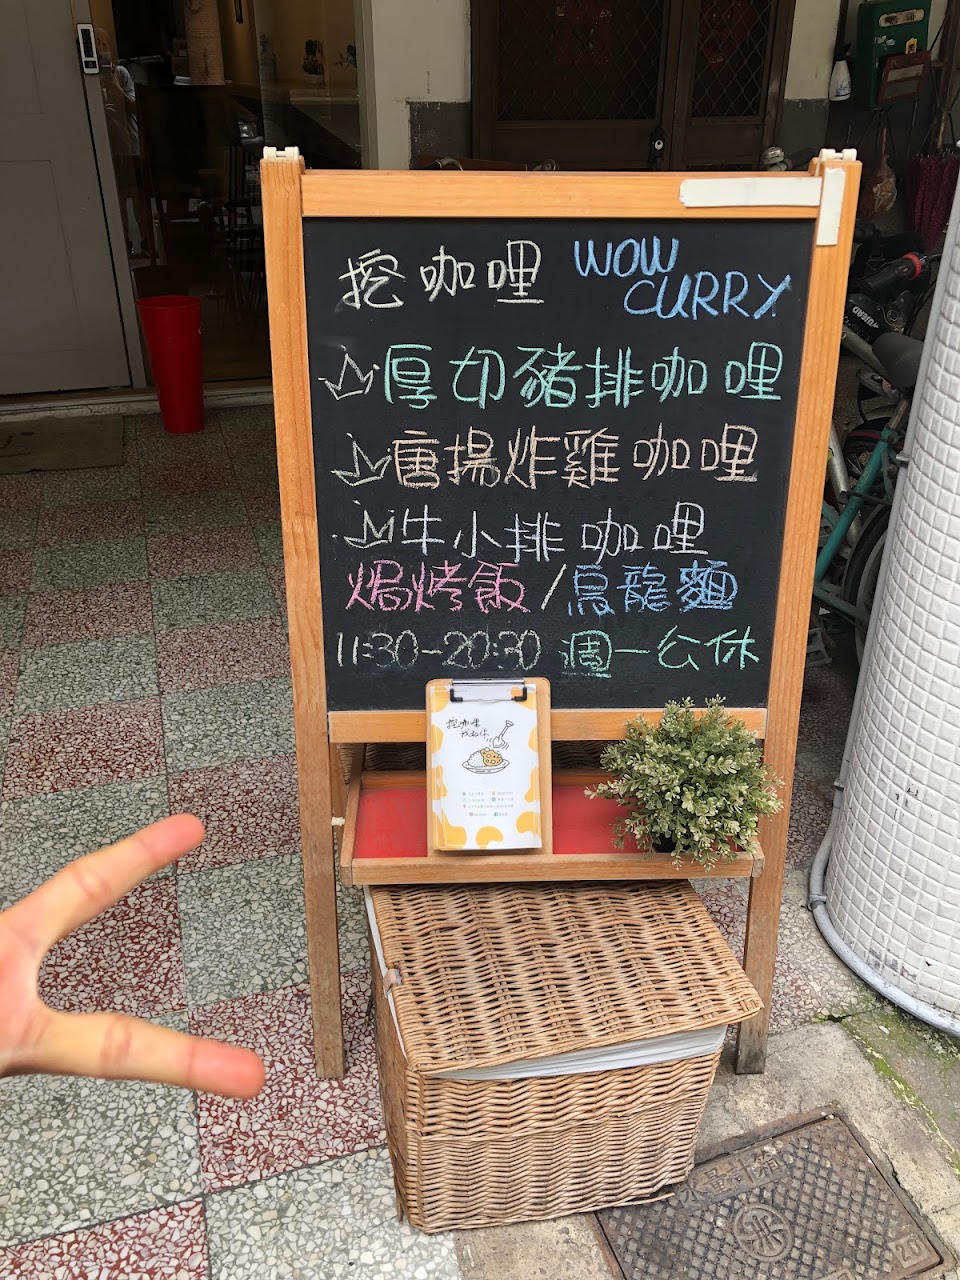 挖咖哩 WOW CURRY
厚切豬排咖哩
唐揚炸雞咖哩
牛小排咖哩
焗烤飯/烏龍麵
11:30-20:30 週一公休
挖咖哩
20